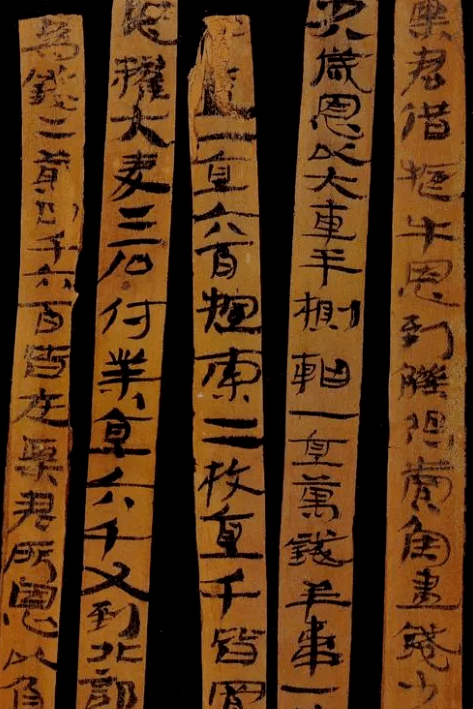 粟君借犅牛恩到觻得賣魚盡錢少
恩以大車半軸一直萬錢羊韋一
一直六百索二枚直千皆置
糴大麥二石付業直六千又到北部
為錢二萬四千六百皆在粟君所恩以負